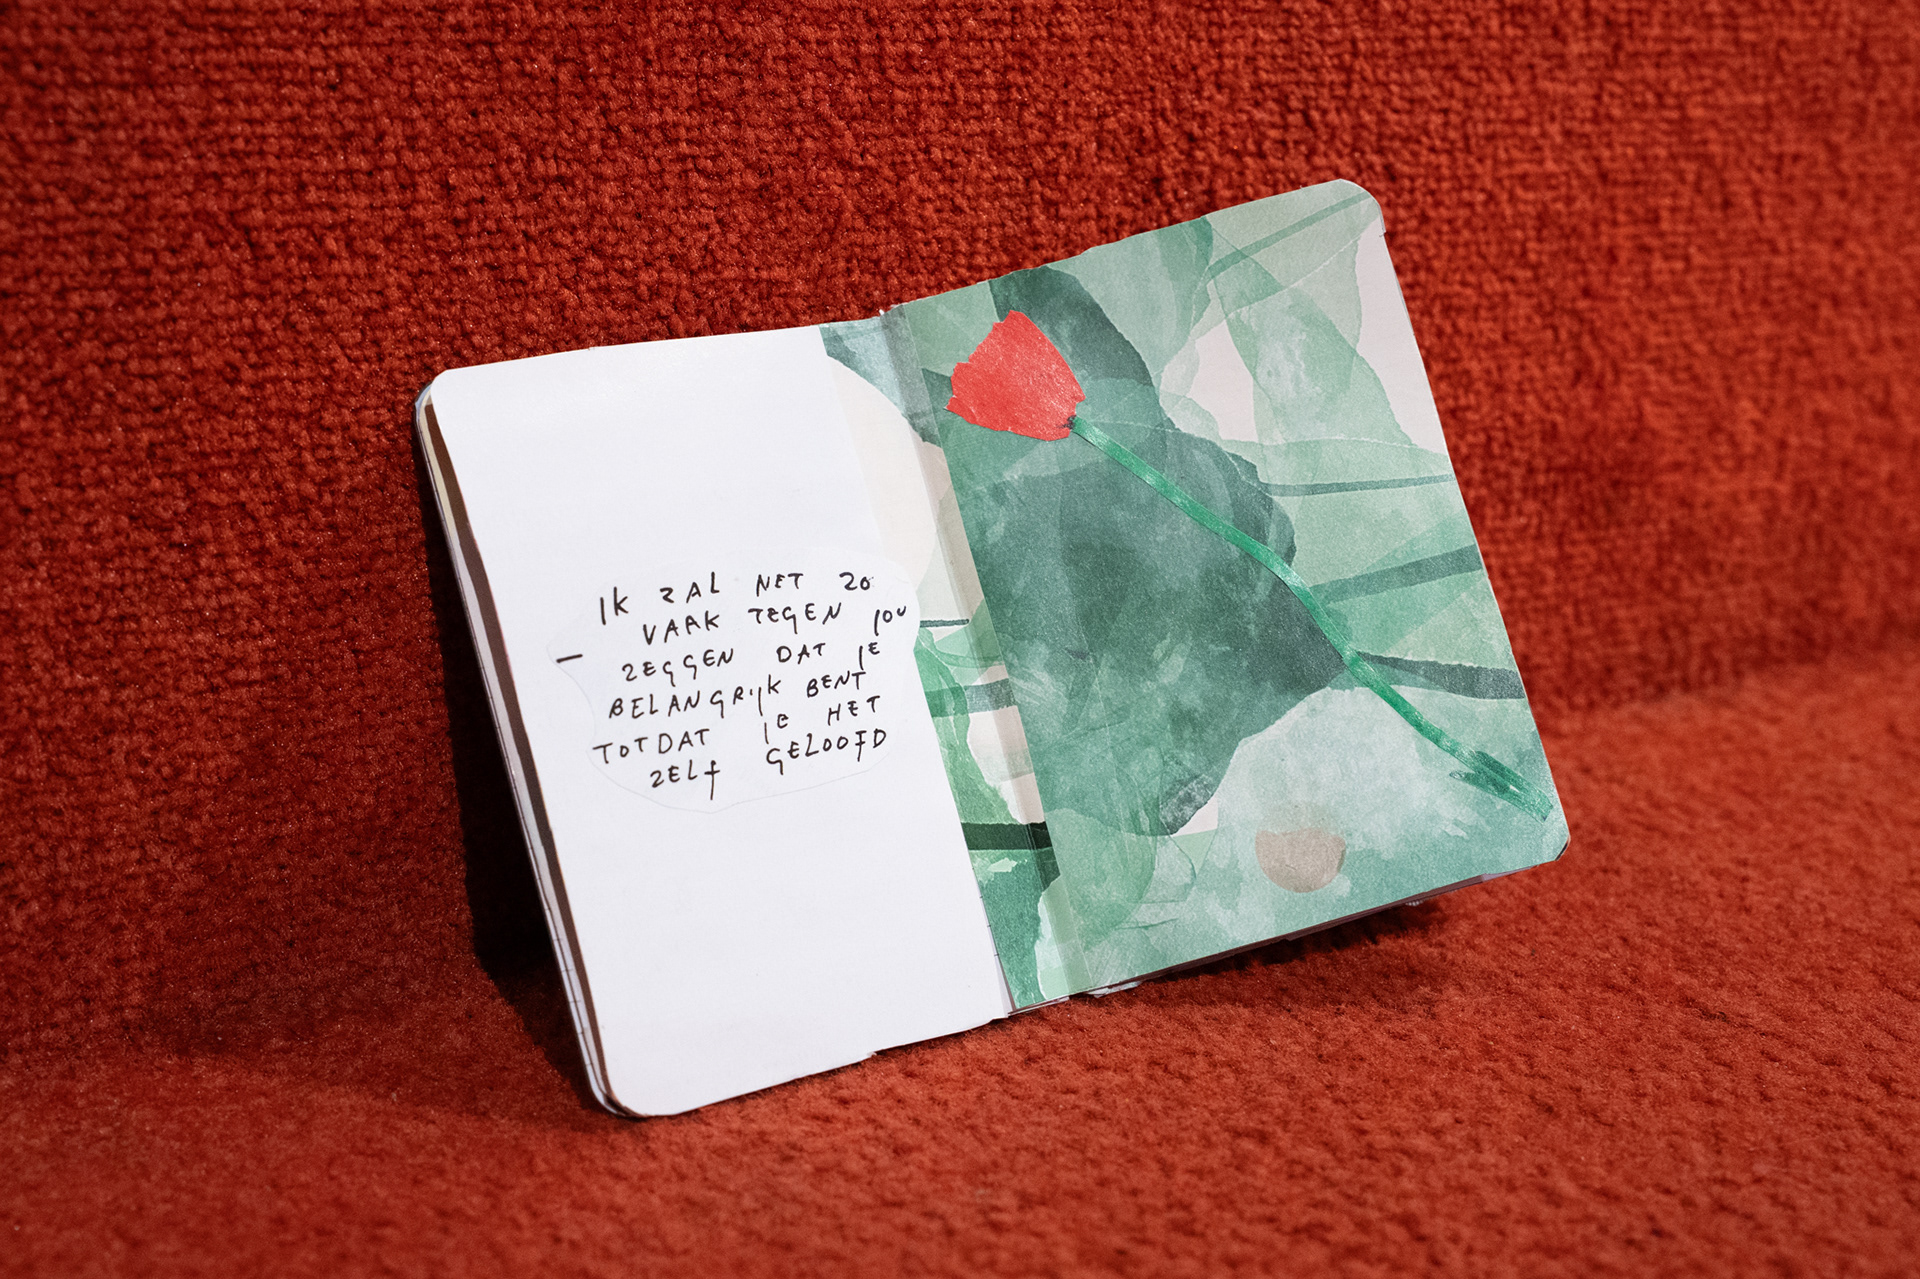 IK ZAL NET ZO
VAAK TEGEN JOU
– ZEGGEN DAT JE
BELANGRIJK BENT
TOTDAT JE HET
ZELF GELOOFD